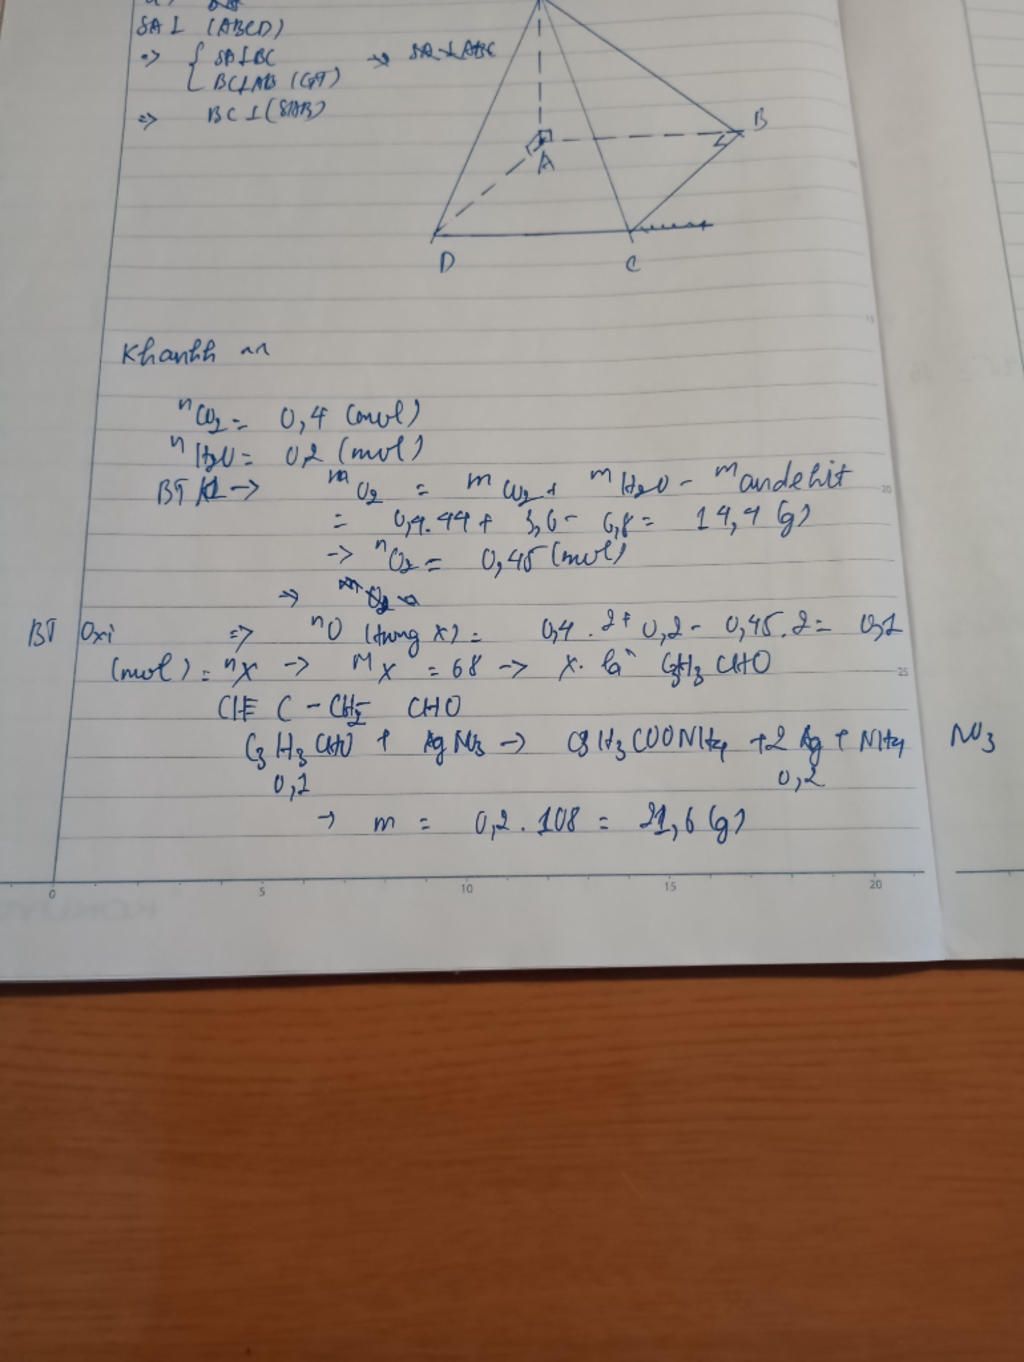 SA ⊥ (ABCD)
=> { SA ⊥ BC → SA ⊥ ABC
BC ⊥ AB (GT)
=> BC ⊥ (SAB)
A
B
D
C
Khanhh an
nCO2 = 0,4 (mol)
nH2O = 0,2 (mol)
BT KL → mO2 = mCO2 + mH2O - mandehit
= 0,4.44 + 3,6 - 6,8 = 14,4 (g)
→ nO2 = 0,45 (mol)
=>
BT Oxi => nO (trong X) = 0,4 . 2 + 0,2 - 0,45.2 = 0,1
(mol) = nX → MX = 68 → X là C3H3 CHO
CH≡C - CH2 - CHO
C3H3CHO + AgNO3 → C3H3COONH4 + 2 Ag + NH4 NO3
0,1 0,2
→ m = 0,2 . 108 = 21,6 (g)
0 5 10 15 20
15
20
25